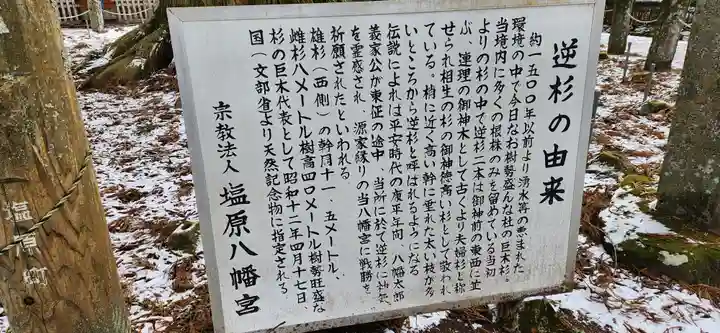 逆杉の由来
約一五〇〇年以前より湧水等の恵まれた
環境の中で今日なお樹勢盛んな社の巨木杉。
当境内に多くの根株のみを留めている当初
よりの杉の中で逆杉二本は御神前の東西に並
ぶ、連理の御神木として古くより夫婦杉と称
せられ相生の杉の御神徳高い杉として敬われ
ている。梢に近く高い幹に垂れた太い枝が多
いところから逆杉と呼ばれるようになる
伝説によれば平安時代の康平年間、八幡太郎
義家公が東征の途中、当所に於て逆杉に神気
を霊感され、源家縁りの当八幡宮に戦勝を
祈願されたといわれる
雄杉(西側)の幹周十一、五メートル、
雌杉八メートル樹高四〇メートル樹勢旺盛な
杉の巨木代表として昭和十二年四月十七日、
国(文部省)より天然記念物に指定される。
宗教法人 塩原八幡宮
塩原町